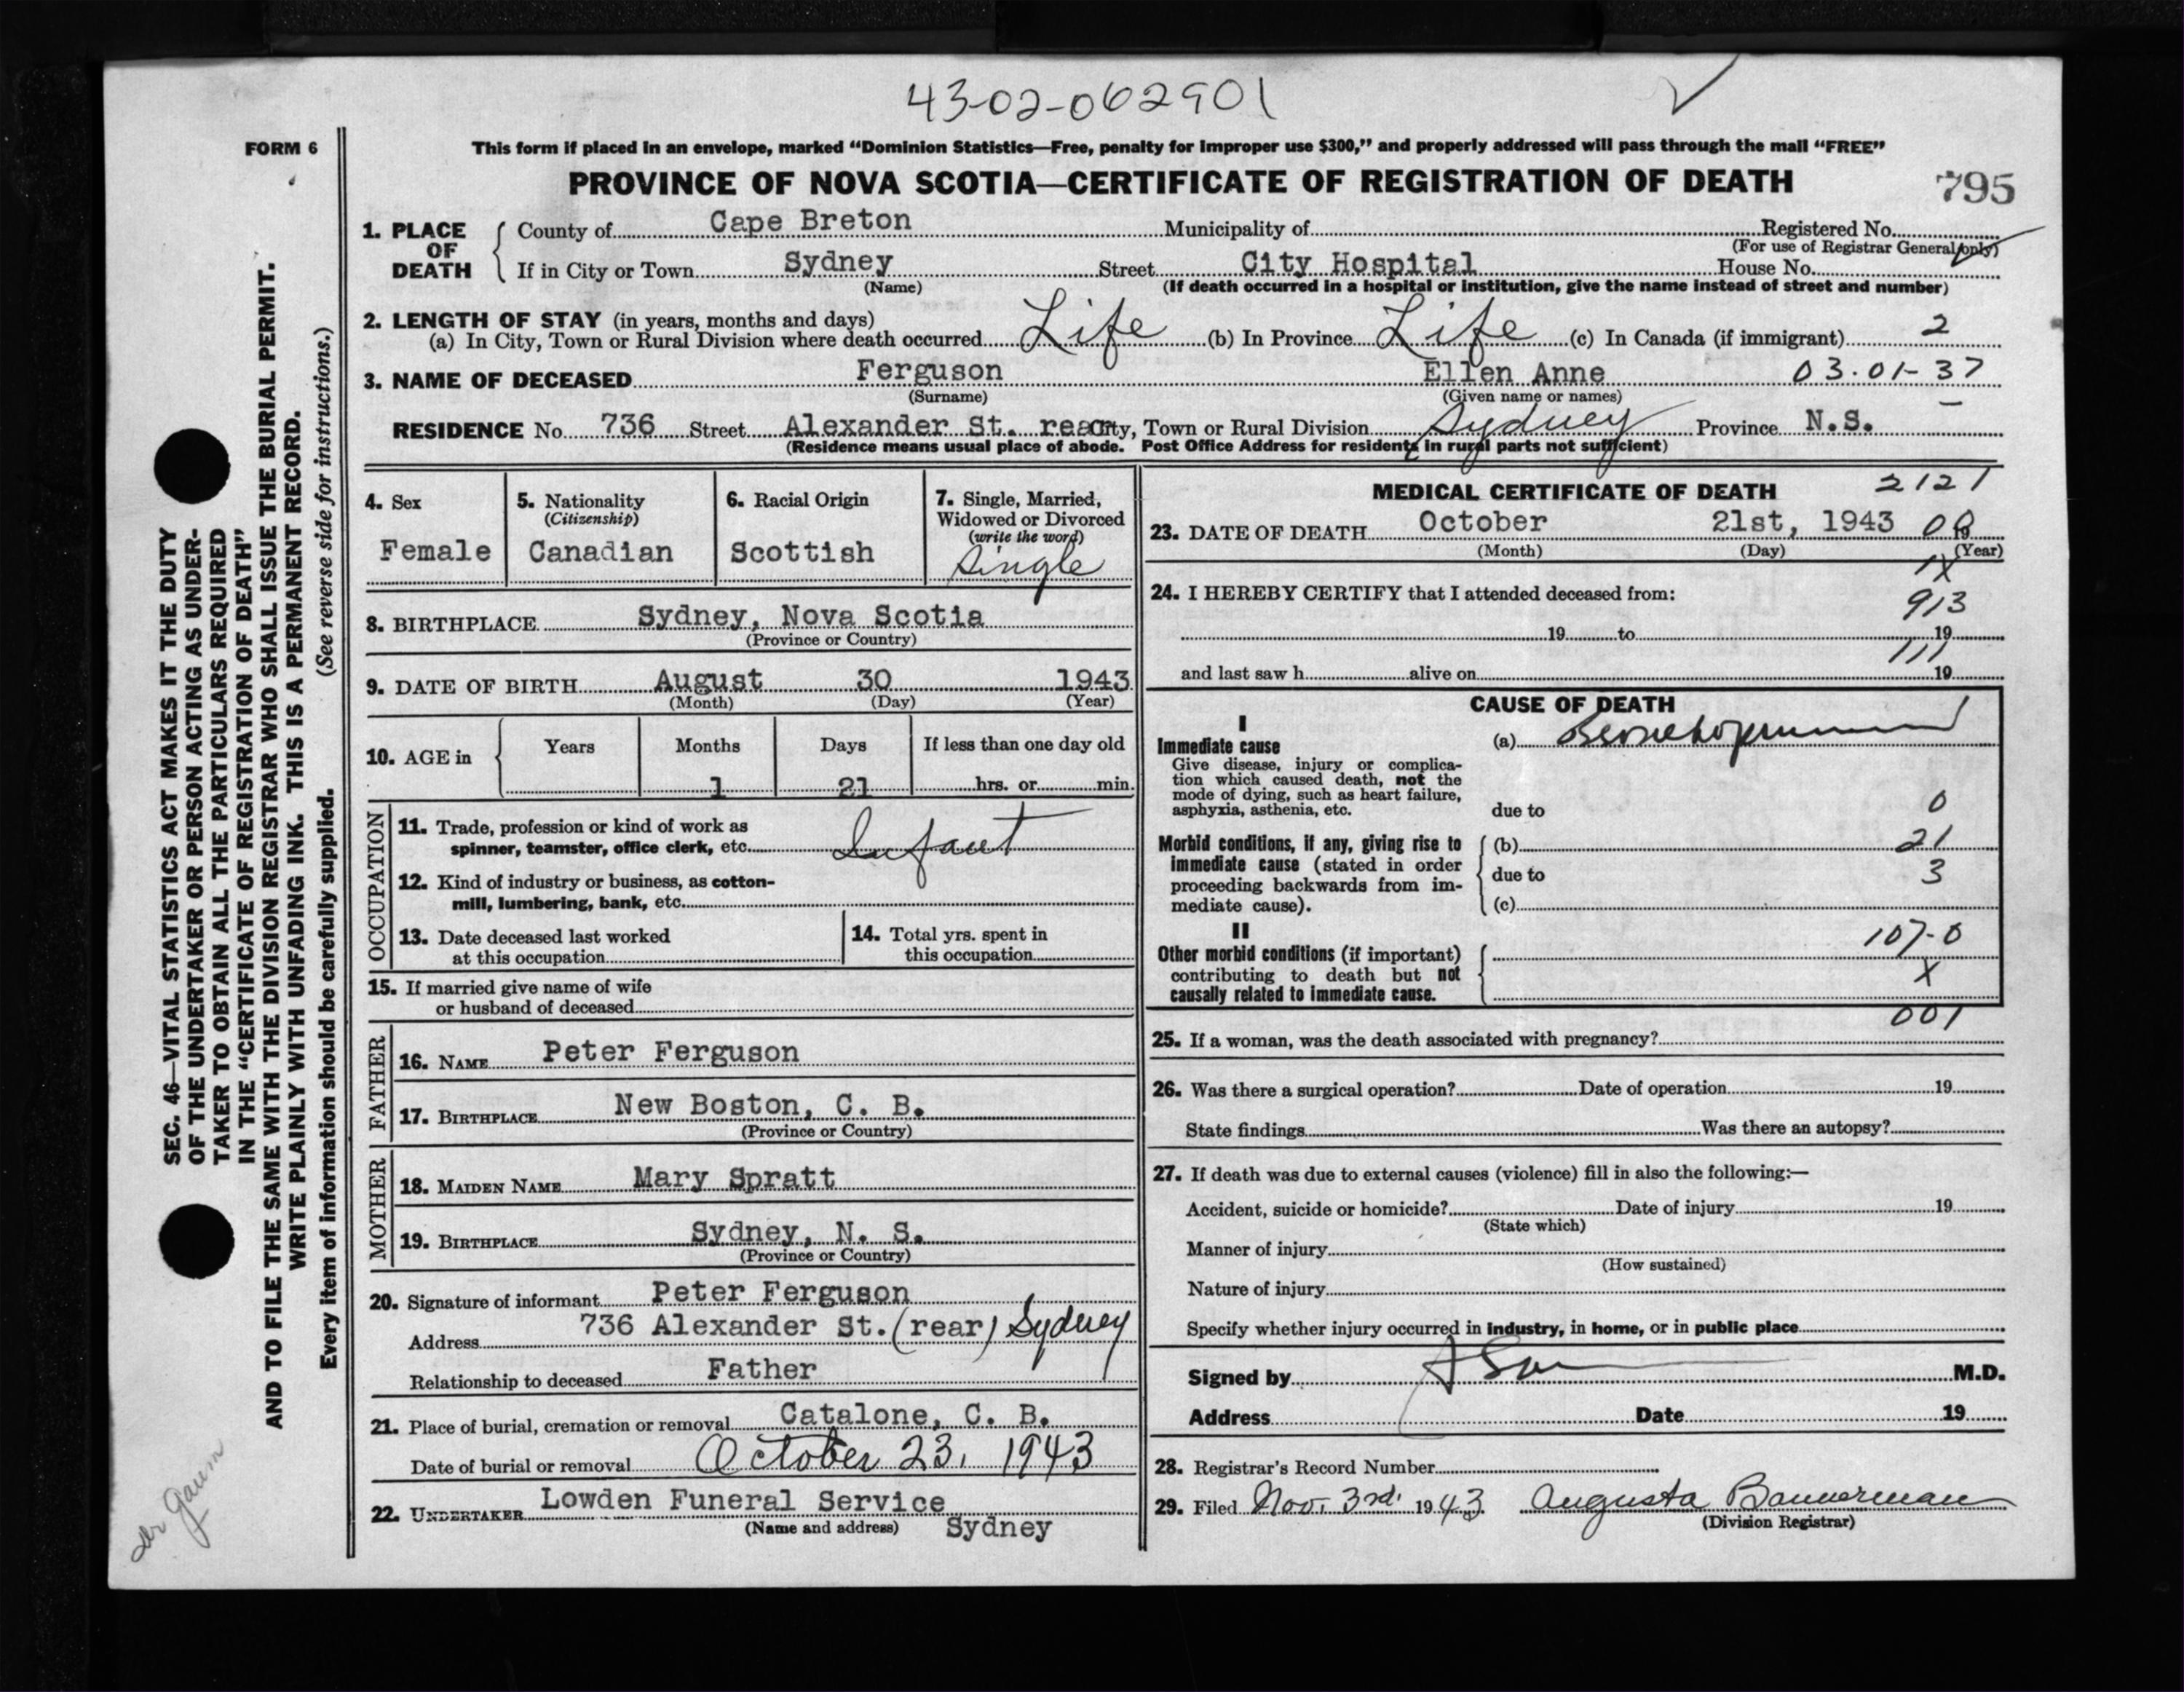 43-02-062901
FORM 6
This form if placed in an envelope, marked "Dominion Statistics—Free, penalty for improper use $300," and properly addressed will pass through the mail "FREE"
PROVINCE OF NOVA SCOTIA—CERTIFICATE OF REGISTRATION OF DEATH
795
1. PLACE OF DEATH
County of Cape Breton Municipality of Registered No.
(For use of Registrar General only)
If in City or Town Sydney Street City Hospital House No.
(Name) (If death occurred in a hospital or institution, give the name instead of street and number)
2. LENGTH OF STAY (in years, months and days)
(a) In City, Town or Rural Division where death occurred Life (b) In Province Life (c) In Canada (if immigrant) 2
3. NAME OF DECEASED Ferguson Ellen Anne 03.01-37
(Surname) (Given name or names)
RESIDENCE No. 736 Street Alexander St. rear City, Town or Rural Division Sydney Province N.S.
(Residence means usual place of abode. Post Office Address for residents in rural parts not sufficient)
4. Sex
Female
5. Nationality
(Citizenship)
Canadian
6. Racial Origin
Scottish
7. Single, Married,
Widowed or Divorced
(write the word)
Single
8. BIRTHPLACE Sydney, Nova Scotia
(Province or Country)
9. DATE OF BIRTH August 30 1943
(Month) (Day) (Year)
10. AGE in
Years Months Days If less than one day old
1 21 hrs. or min.
OCCUPATION
11. Trade, profession or kind of work as
spinner, teamster, office clerk, etc. Infant
12. Kind of industry or business, as cotton-
mill, lumbering, bank, etc.
13. Date deceased last worked
at this occupation
14. Total yrs. spent in
this occupation
15. If married give name of wife
or husband of deceased
FATHER
16. NAME Peter Ferguson
17. BIRTHPLACE New Boston, C. B.
(Province or Country)
MOTHER
18. MAIDEN NAME Mary Spratt
19. BIRTHPLACE Sydney, N. S.
(Province or Country)
20. Signature of informant Peter Ferguson
Address 736 Alexander St. (rear) Sydney
Relationship to deceased Father
21. Place of burial, cremation or removal Catalone, C. B.
Date of burial or removal October 23, 1943
22. UNDERTAKER Lowden Funeral Service
(Name and address) Sydney
MEDICAL CERTIFICATE OF DEATH 2121
23. DATE OF DEATH October 21st, 1943 19
(Month) (Day) (Year)
24. I HEREBY CERTIFY that I attended deceased from:
913
19 to 19
111
and last saw h alive on 19
CAUSE OF DEATH
I
Immediate cause
Give disease, injury or complica-
tion which caused death, not the
mode of dying, such as heart failure,
asphyxia, asthenia, etc.
(a)
due to
0
Morbid conditions, if any, giving rise to
immediate cause (stated in order
proceeding backwards from im-
mediate cause).
(b) 21
due to 3
(c)
II
Other morbid conditions (if important)
contributing to death but not
causally related to immediate cause.
107-0
X
001
25. If a woman, was the death associated with pregnancy?
26. Was there a surgical operation? Date of operation 19
State findings Was there an autopsy?
27. If death was due to external causes (violence) fill in also the following:—
Accident, suicide or homicide? Date of injury 19
(State which)
Manner of injury
(How sustained)
Nature of injury
Specify whether injury occurred in industry, in home, or in public place
Signed by M.D.
Address Date 19
28. Registrar's Record Number
29. Filed Nov. 3rd. 1943 Augusta Bannerman
(Division Registrar)
SEC. 46—VITAL STATISTICS ACT MAKES IT THE DUTY
OF THE UNDERTAKER OR PERSON ACTING AS UNDER-
TAKER TO OBTAIN ALL THE PARTICULARS REQUIRED
IN THE "CERTIFICATE OF REGISTRATION OF DEATH"
AND TO FILE THE SAME WITH THE DIVISION REGISTRAR WHO SHALL ISSUE THE BURIAL PERMIT.
WRITE PLAINLY WITH UNFADING INK. THIS IS A PERMANENT RECORD.
Every item of information should be carefully supplied. (See reverse side for instructions.)